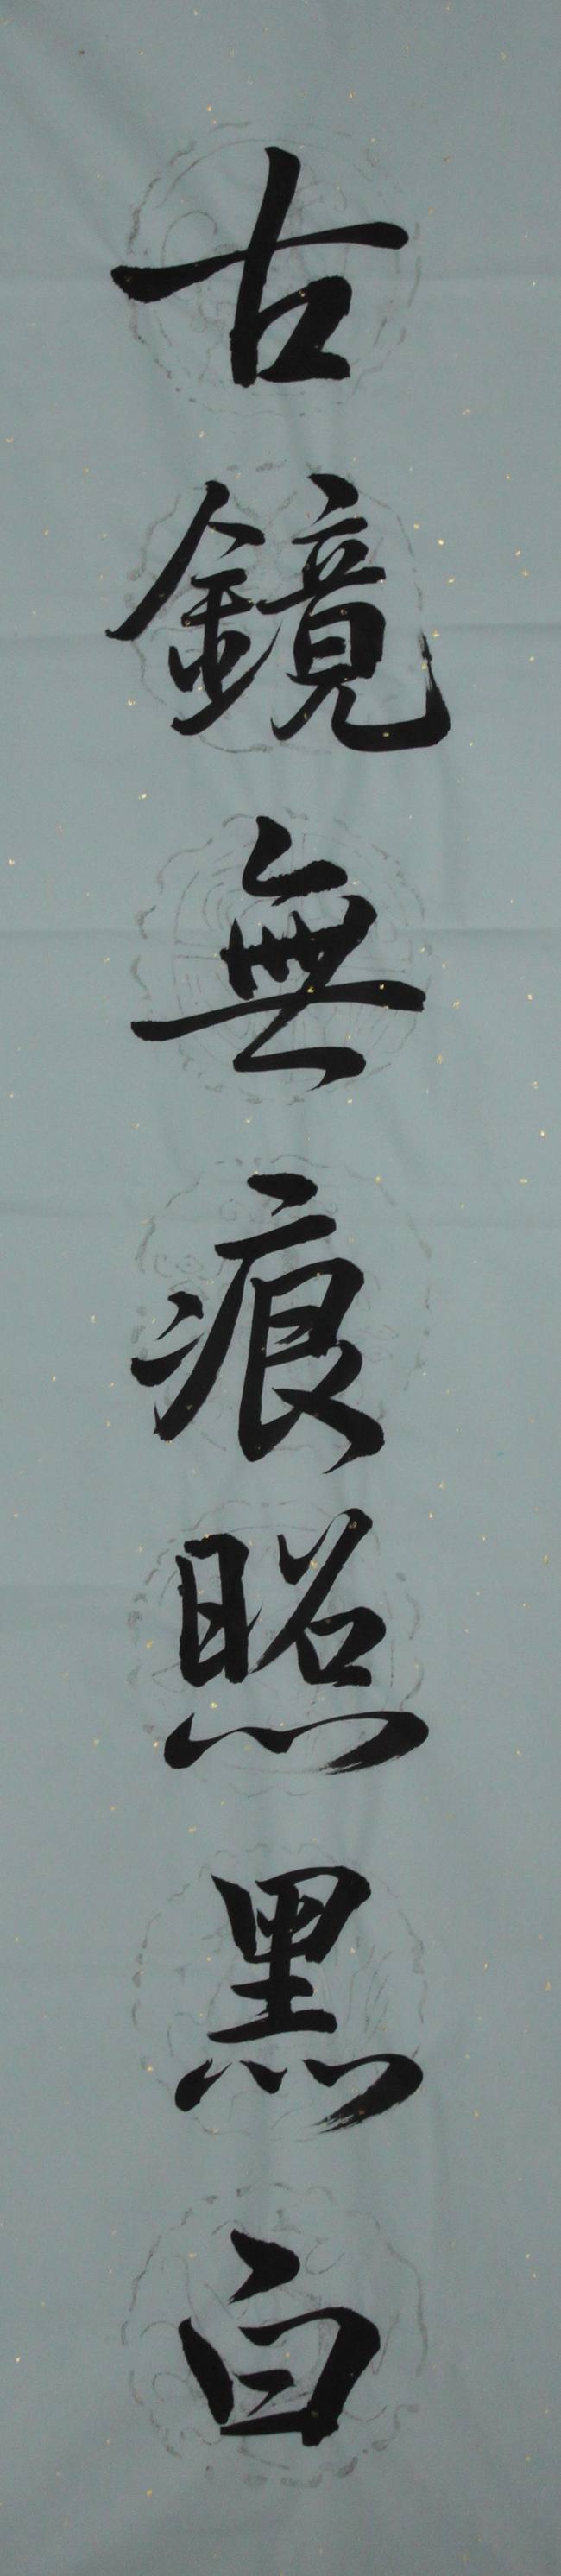 古鏡無痕照黑白